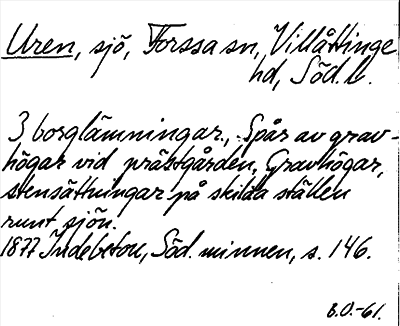 Uren, sjö, Forssa sn, Villåttinge
hd, Söd. l.
3 borglämningar., Spår av grav-
högar vid prästgården, Gravhögar,
stensättningar på skilda ställen
runt sjön.
1877 Indebetou, Söd. minnen, s. 146.
B.O.-61.